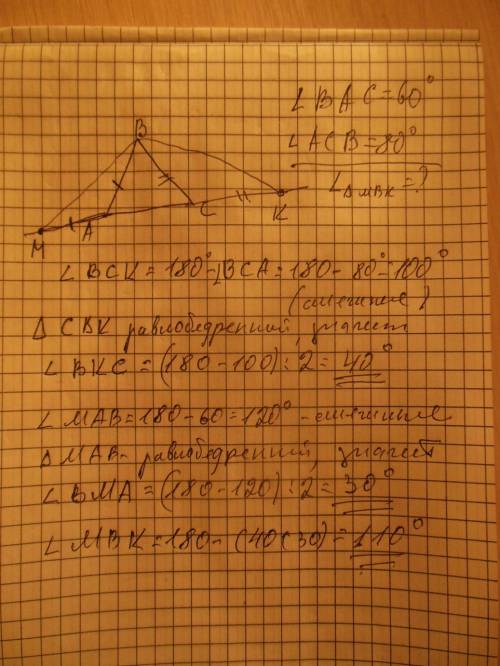 ∠BAC=60°
∠ACB=80°
∠ΔMBK=?
B
M
A
C
K
∠BCK=180°-∠BCA=180-80°=100°
(смежные)
ΔCBK равнобедренный, значит
∠BKC=(180-100):2=40°
∠MAB=180-60=120°-смежные
ΔMAB-равнобедренный, значит
∠BMA=(180-120):2=30°
∠MBK=180-(40(30)=110°